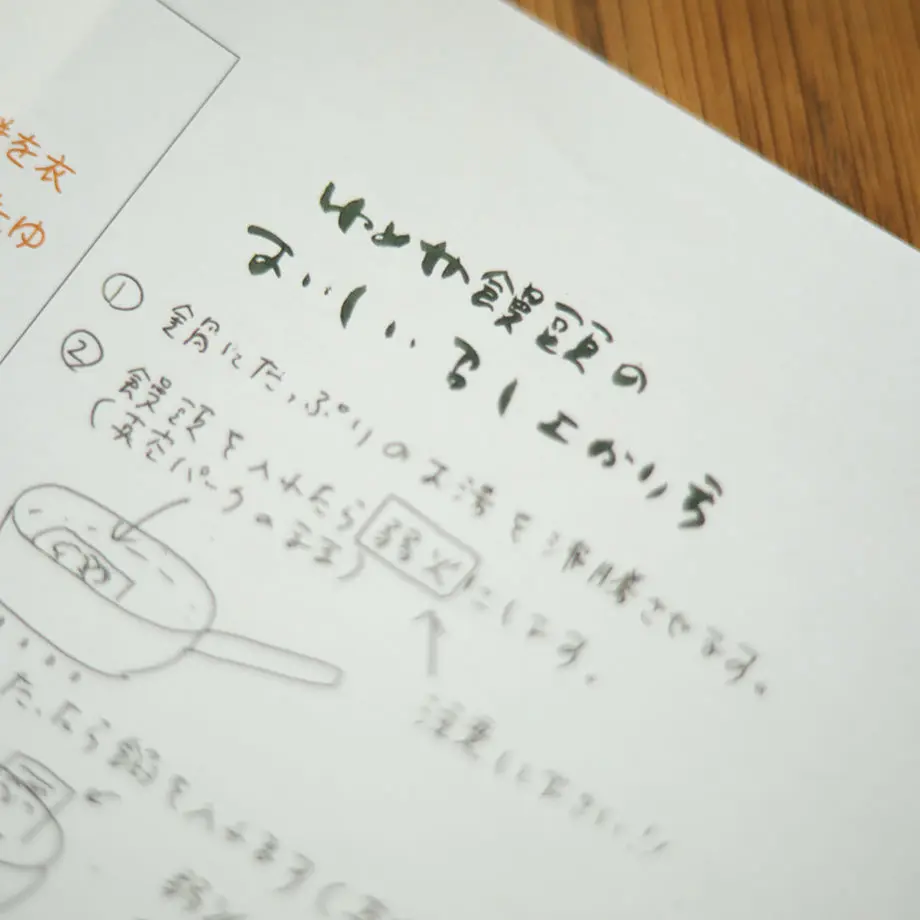 を衣
ゆ
ゆめか饅頭の
おいしいめし上がり方
① 鍋にたっぷりのお湯を沸騰させます。
② 饅頭を入れたら弱火にします。
(真空パックのまま)
注意下さい!!
たったら餡を入れます(
弱火